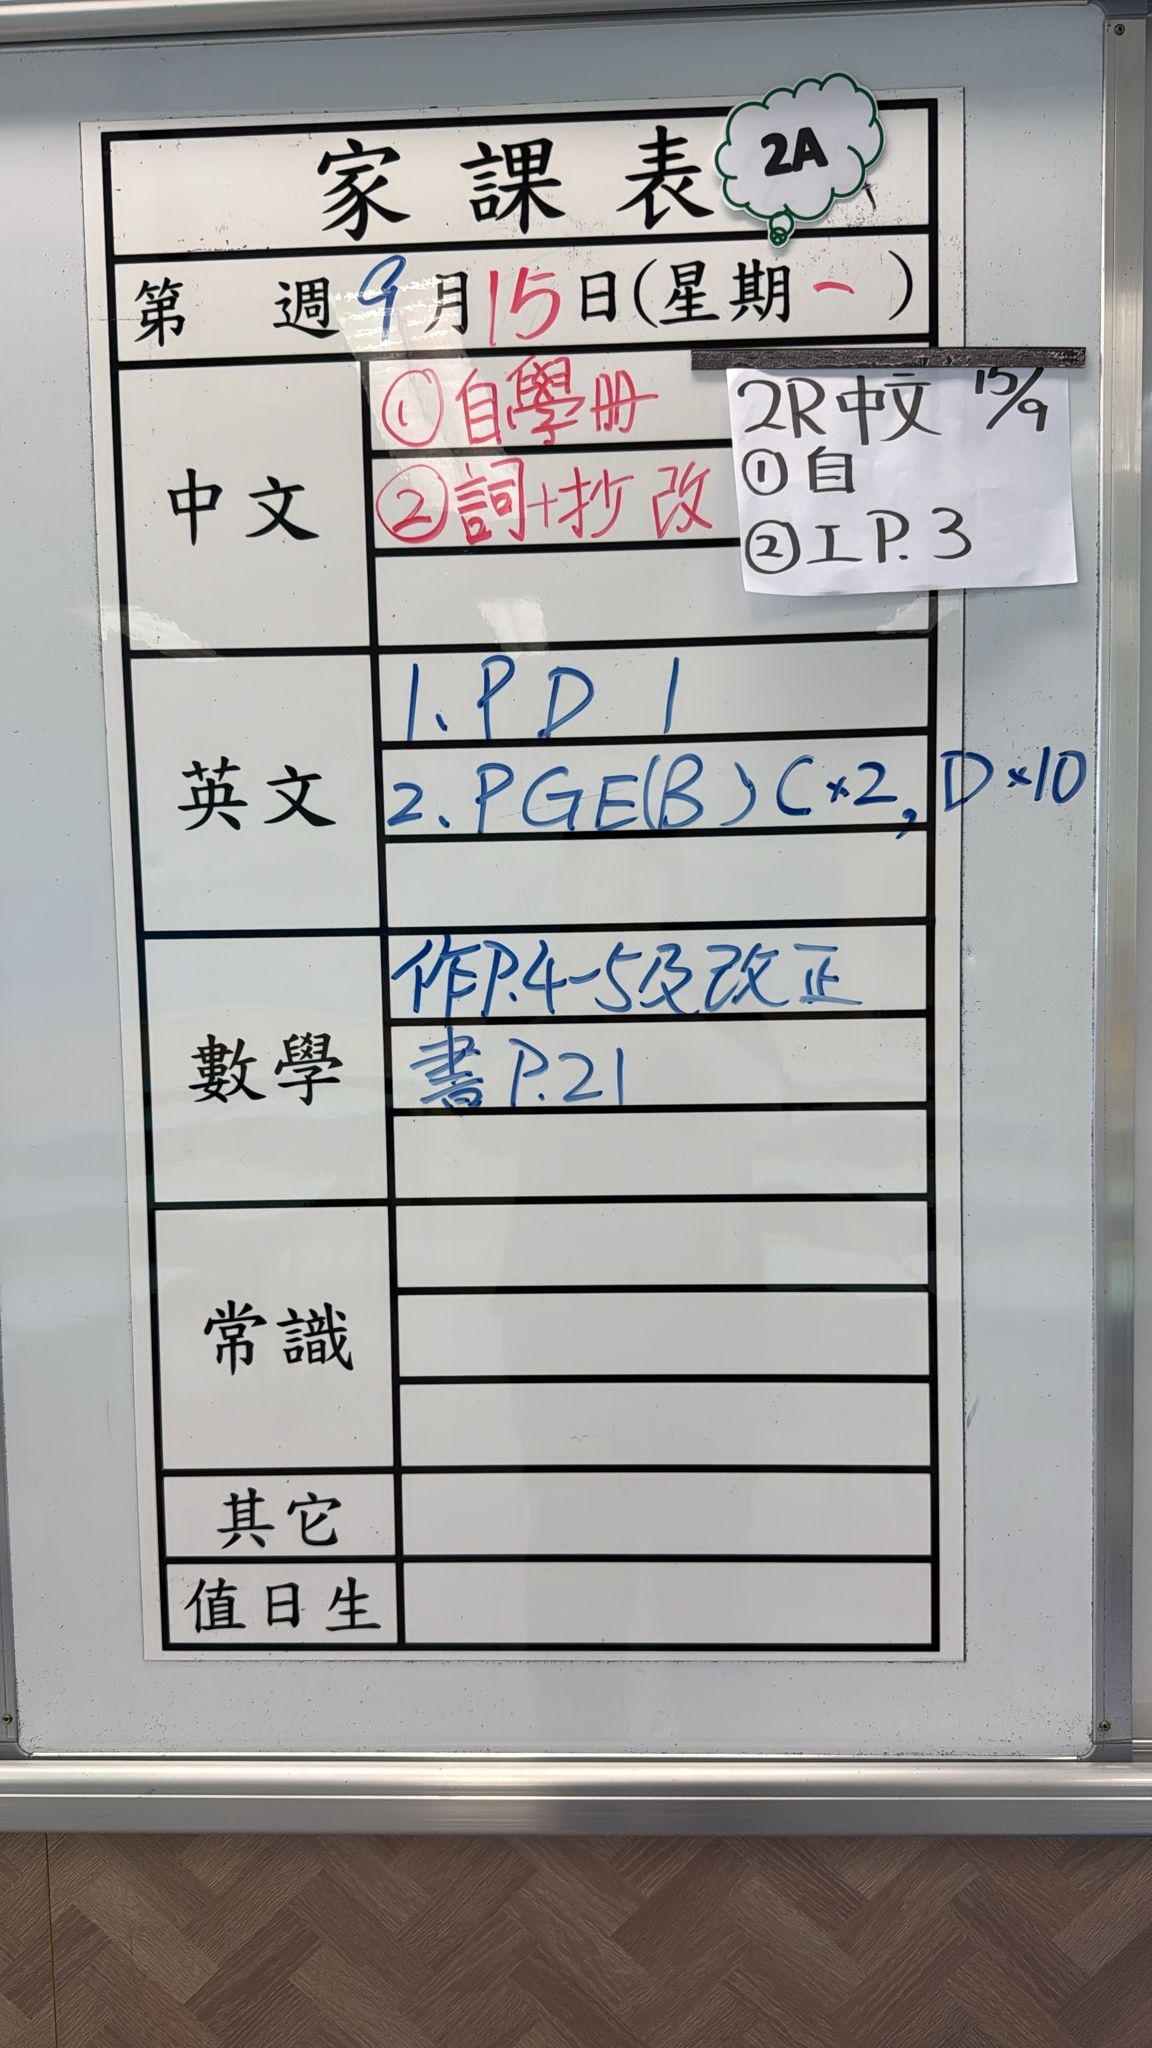 家課表
2A
第 週 9月15日(星期一 )
中文
①自學册
②詞+抄改
2R中文 15/9
①自
②工P.3
英文
1. PD 1
2. PGE(B) C×2, D×10
數學
作P.4-5及改正
書P.21
常識
其它
值日生